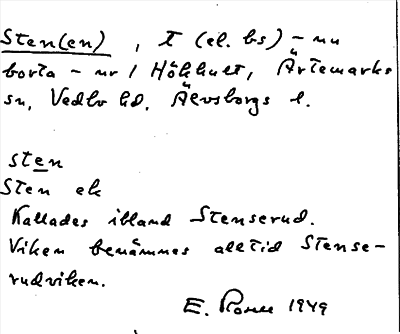 Sten(en), t (el. bs) - nu
borta - ur 1 Hökhult, Ärtemarks
sn, Vedbo hd, Älvsborgs l.
sten
Sten ek
Kallades ibland Stenserud.
Viken benämnes alltid Stense-
rudviken.
E. 1949